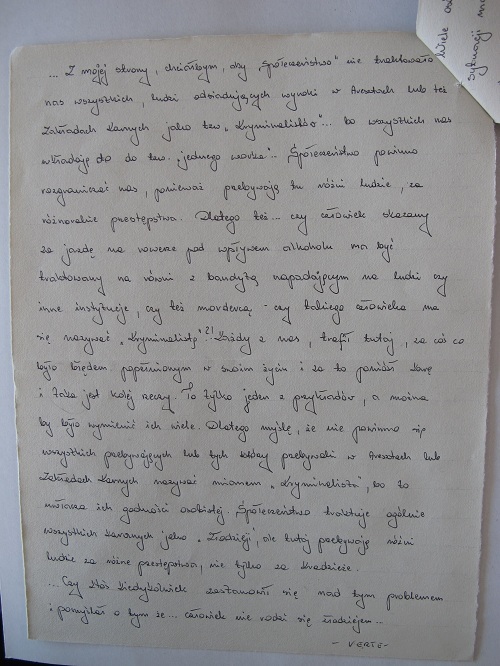 ... Z mojej strony, chciałbym, aby „Społeczeństwo" nie traktowało
nas wszystkich, ludzi odsiadujących wyroki w Aresztach lub też
Zakładach Karnych jako tzw. „Kryminalistów"... bo wszystkich nas
wkładają do tzw. „jednego worka"... Społeczeństwo powinno
rozgraniczać nas, ponieważ przebywają tu różni ludzie, za
różnorakie przestępstwa. Dlatego też... czy człowiek skazany
za jazdę na rowerze pod wpływem alkoholu ma być
traktowany na równi z bandytą napadającym na ludzi czy
inne instytucje, czy też mordercą - czy takiego człowieka ma
się nazywać „Kryminalistą"?! Każdy z nas, trafił tutaj, za coś co
było błędem popełnionym w swoim życiu i za to poniósł karę
i taka jest kolej rzeczy. To tylko jeden z przykładów, a można
by było wymienić ich wiele. Dlatego myślę, że nie powinno się
wszystkich przebywających lub tych którzy przebywali w Aresztach lub
Zakładach Karnych nazywać mianem „Kryminalista", bo to
uwłacza ich godności osobistej. Społeczeństwo traktuje ogólnie
wszystkich karanych jako „Złodzieji", ale tutaj przebywają różni
ludzie za różne przestępstwa, nie tylko za kradzieże.
... Czy ktoś kiedykolwiek zastanowił się nad tym problemem
i pomyślał o tym że... człowiek nie rodzi się złodziejem...
- VERTE -
Wiele
sytuacji